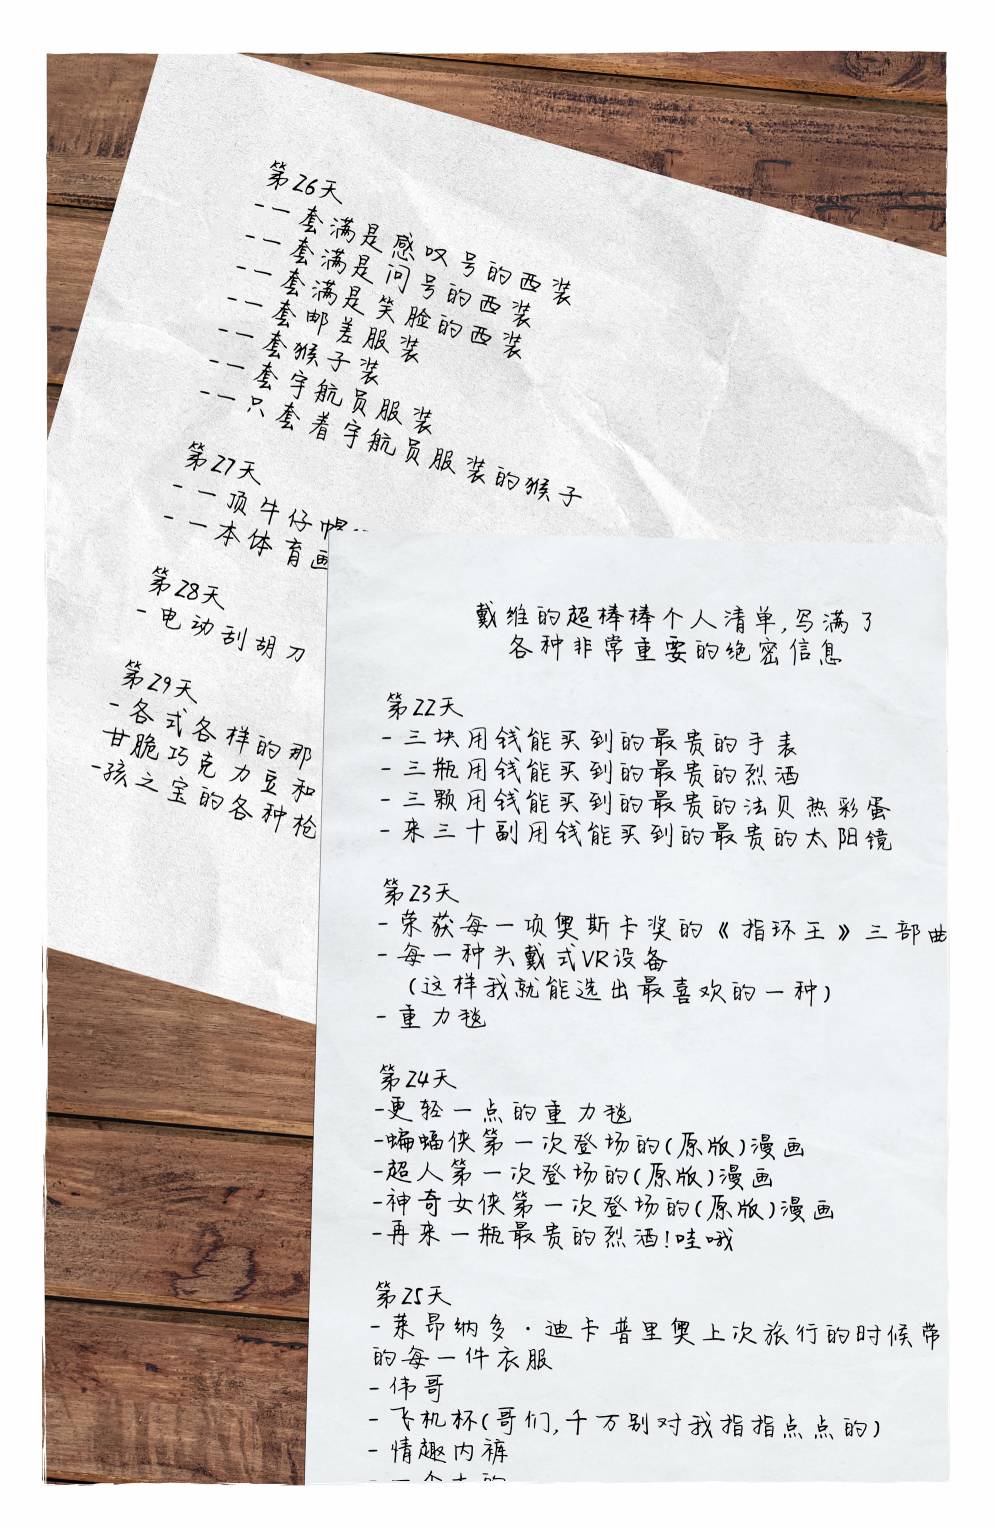 戴维的超棒棒个人清单,写满了
各种非常重要的绝密信息
第22天
- 三块用钱能买到的最贵的手表
- 三瓶用钱能买到的最贵的烈酒
- 三颗用钱能买到的最贵的法贝热彩蛋
- 来三十副用钱能买到的最贵的太阳镜
第23天
- 荣获每一项奥斯卡奖的《指环王》三部曲
- 每一种头戴式VR设备
(这样我就能选出最喜欢的一种)
- 重力毯
第24天
-更轻一点的重力毯
-蝙蝠侠第一次登场的(原版)漫画
-超人第一次登场的(原版)漫画
-神奇女侠第一次登场的(原版)漫画
-再来一瓶最贵的烈酒!哇哦
第25天
- 莱昂纳多·迪卡普里奥上次旅行的时候带
的每一件衣服
- 伟哥
- 飞机杯(哥们,千万别对我指指点点的)
- 情趣内裤
第26天
- 一套满是感叹号的西装
- 一套满是问号的西装
- 一套满是笑脸的西装
- 一套邮差服装
- 一套猴子装
- 一套宇航员服装
- 一只套着宇航员服装的猴子
第27天
- 一顶牛仔帽
- 一本体育画
第28天
- 电动刮胡刀
第29天
- 各式各样的那
甘脆巧克力豆和
-孩之宝的各种枪